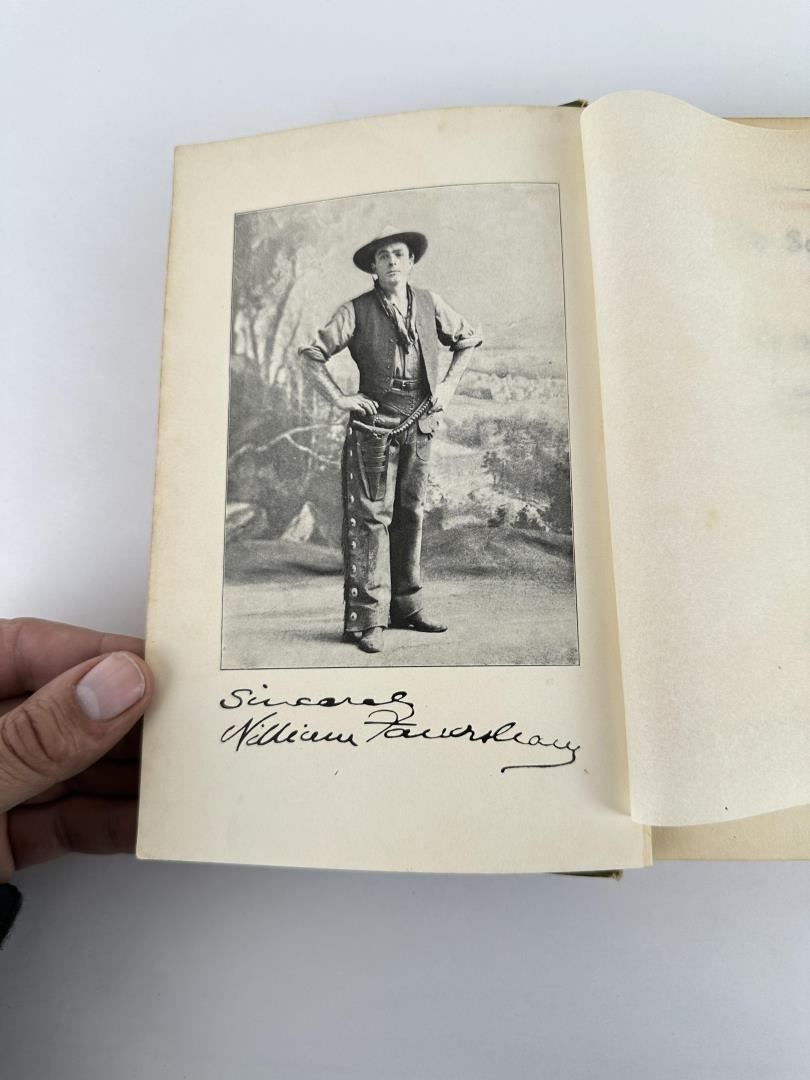 Sincerely
William Faversham